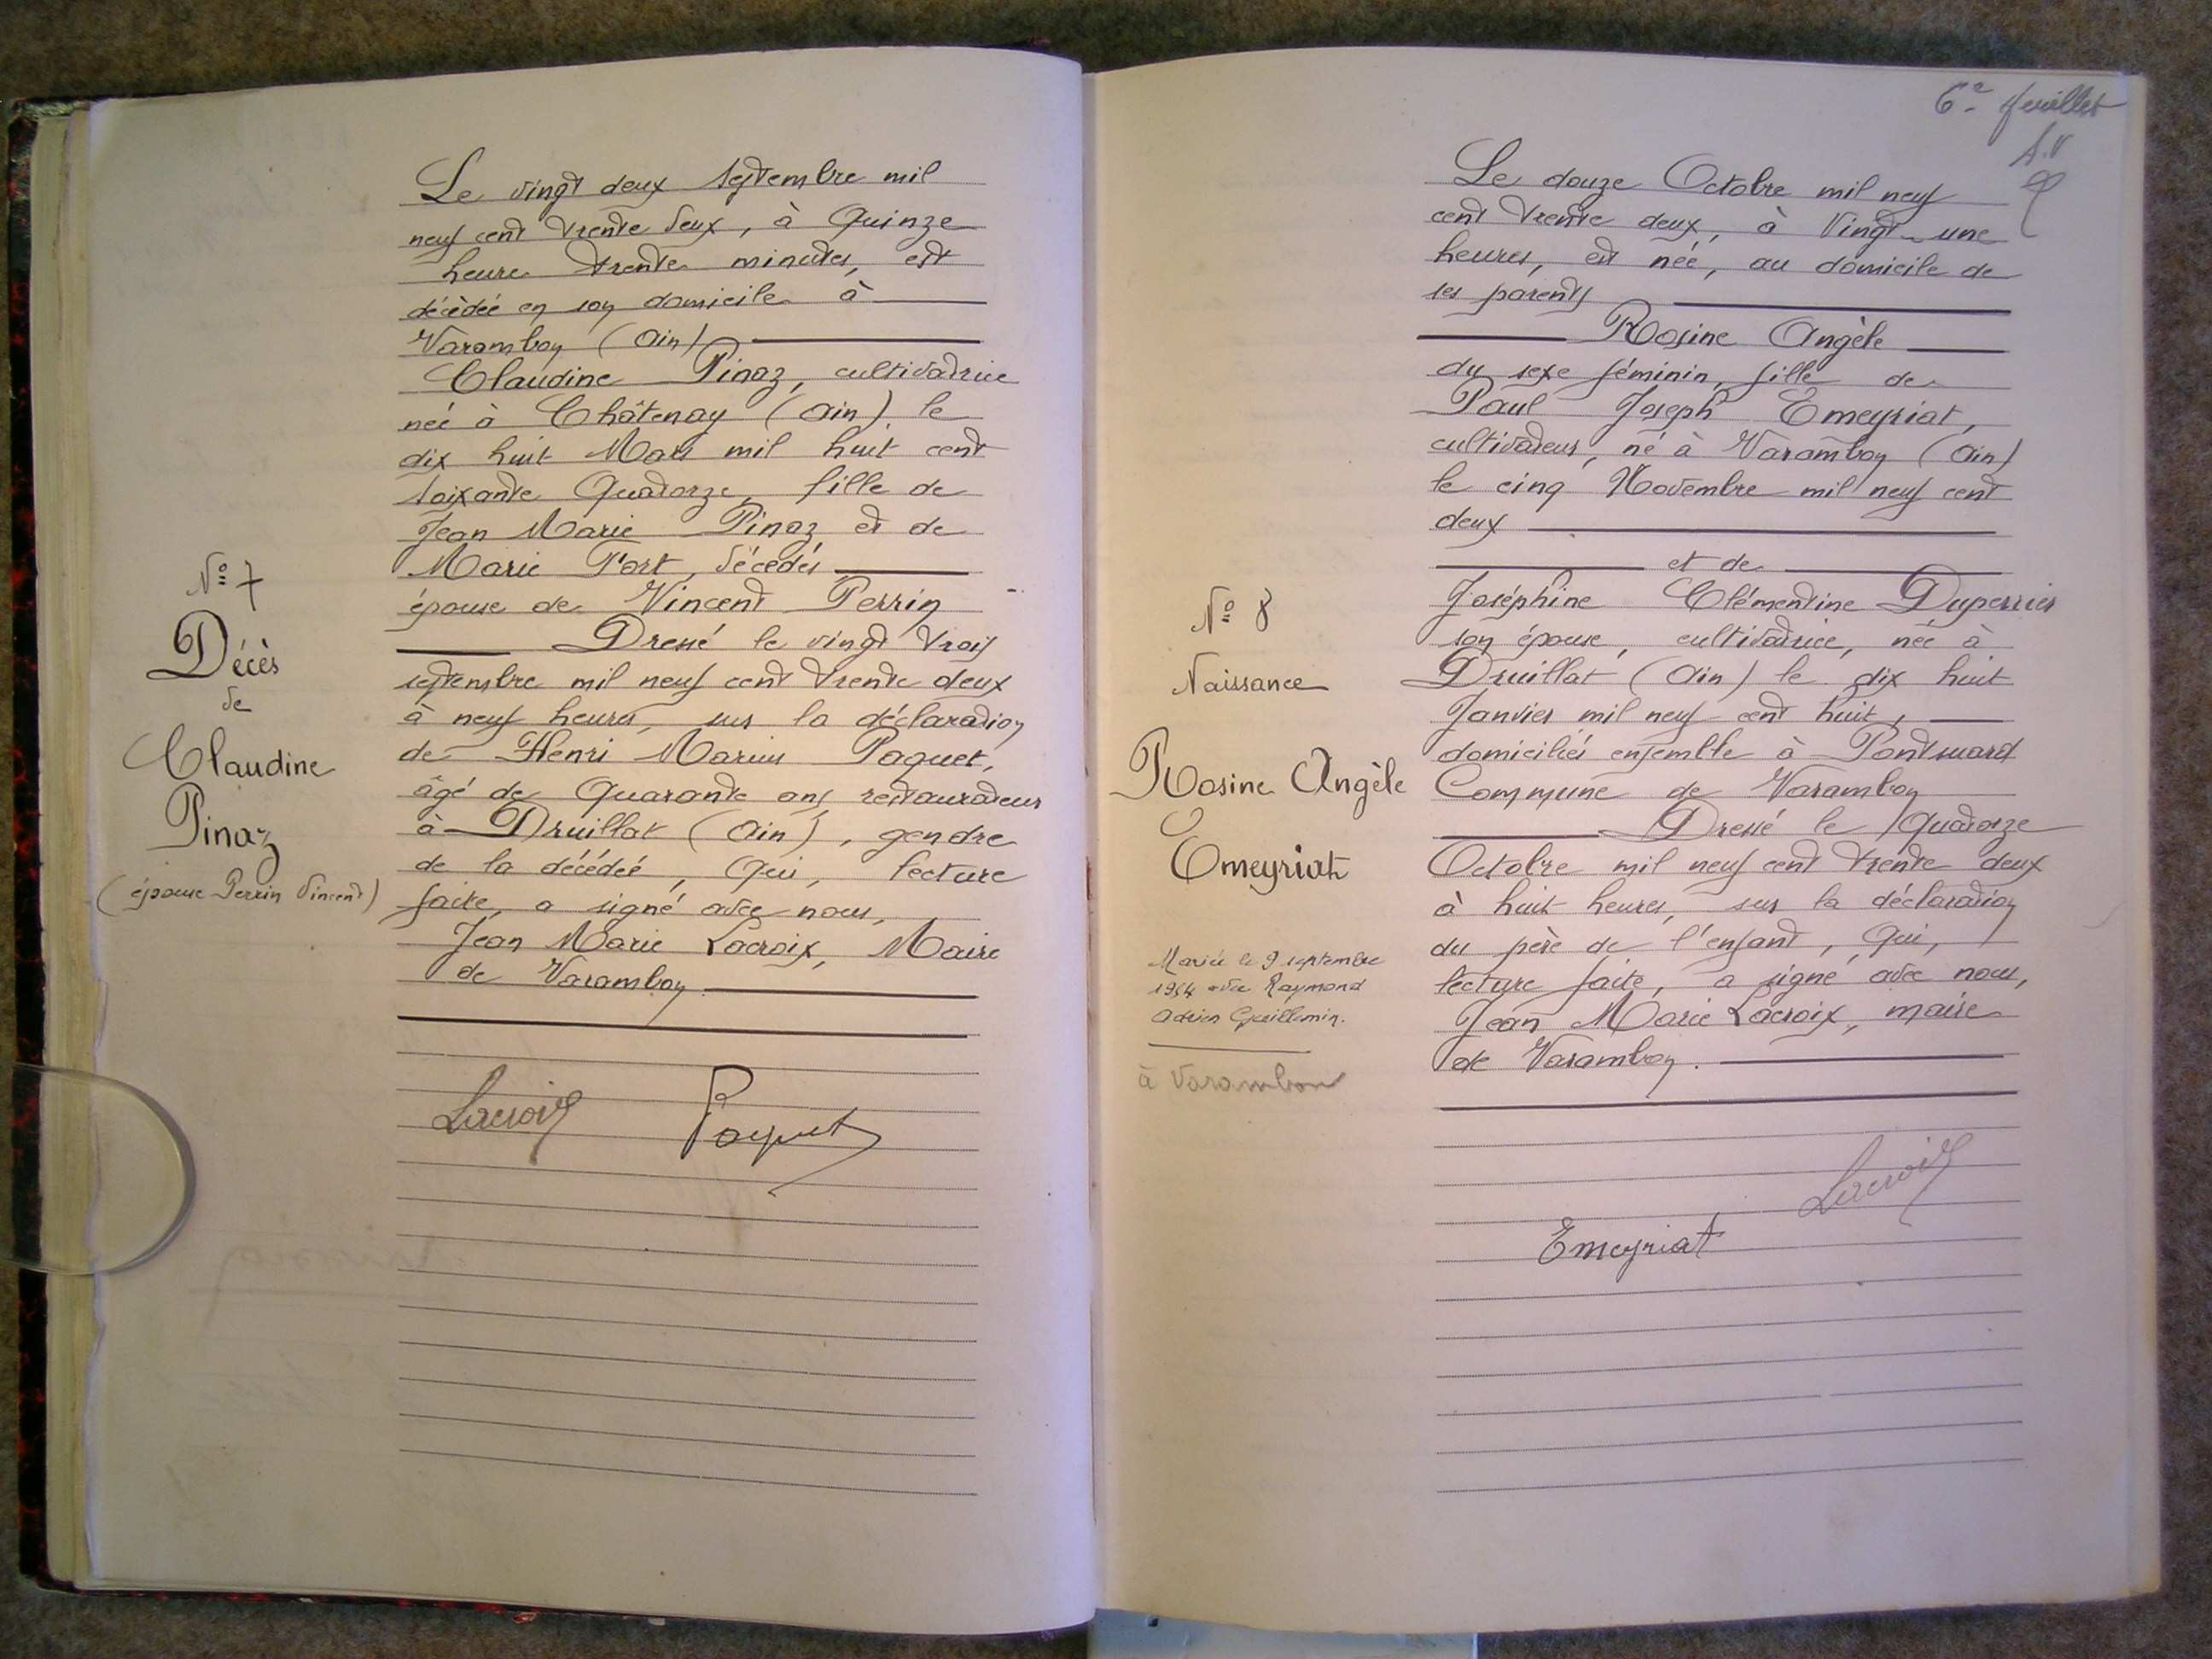 N° 7
Décès
de
Claudine
Pinaz
(épouse Perrin Vincent)
Le vingt deux Septembre mil
neuf cent trente deux, à Quinze
heure trente minutes, est
décédée en son domicile à
Varambon (Ain)
Claudine Pinaz, cultivatrice
née à Châtenay (Ain) le
dix huit Mars mil huit cent
soixante Quatorze, fille de
Jean Marie Pinaz et de
Marie Port, décédés
épouse de Vincent Perrin
Dressé le vingt trois
septembre mil neuf cent trente deux
à neuf heures, sur la déclaration
de Henri Marius Paquet,
âgé de Quarante ans, restaurateur
à Druillat (Ain), gendre
de la décédée, Qui, lecture
faite, a signé avec nous,
Jean Marie Lacroix, Maire
de Varambon
Lacroix Paquet
6e feuillet
N° 8
Naissance
Rosine Angèle
Emeyriat
Mariée le 9 septembre
1954 avec Raymond
Adrien Guillemin.
à Varambon
Le douze Octobre mil neuf
cent trente deux, à Vingt-une
heures, est née, au domicile de
ses parents
Rosine Angèle
du sexe féminin, fille de
Paul Joseph Emeyriat,
cultivateur, né à Varambon (Ain)
le cinq Novembre mil neuf cent
deux
et de
Joséphine Clémentine Duperrier
son épouse, cultivatrice, née à
Druillat (Ain) le dix huit
Janvier mil neuf cent huit,
domiciliés ensemble à
Commune de Varambon
Dressé le Quatorze
Octobre mil neuf cent trente deux
à huit heures, sur la déclaration
du père de l'enfant, Qui,
lecture faite, a signé avec nous,
Jean Marie Lacroix, maire
de Varambon.
Lacroix
Emeyriat